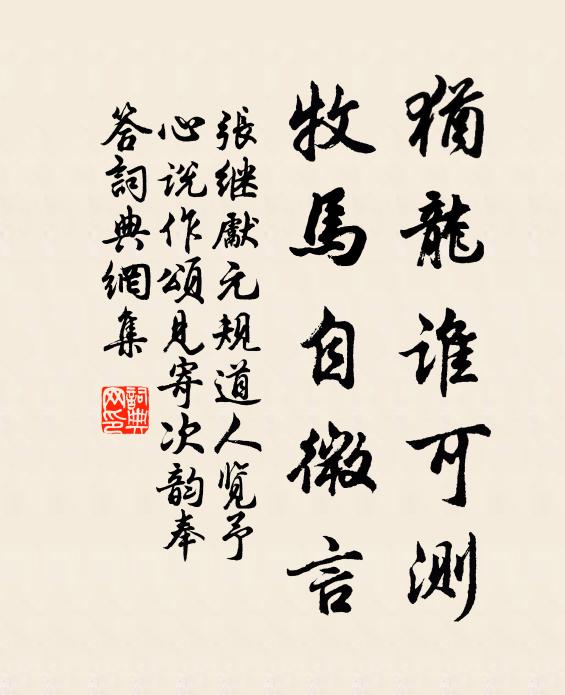 猶龍誰可測
牧馬自微言
張继獻元規道人览予
心说作頌見寄次韵奉
答詞典網集
詞典网印